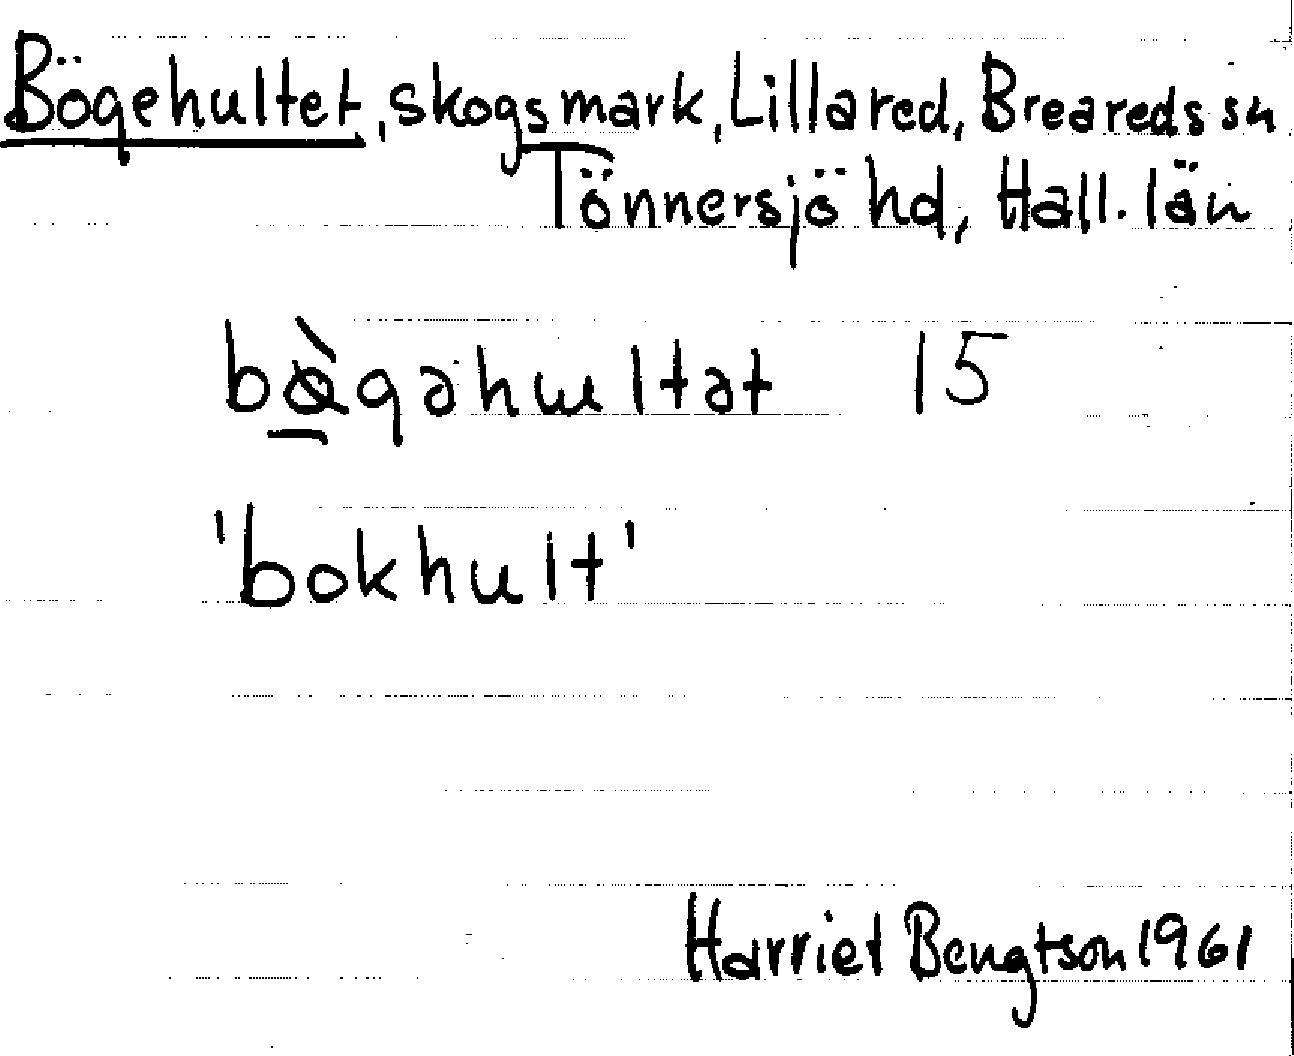 Bögehultet, skogsmark, Lillared, Breareds sn
Tönnersjö hd, Hall. län
bø̀gəhultət 15
'bokhult'
Harriet Bengtson 1961